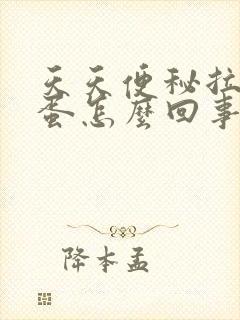 天天便秘拉
蛋怎麼回事
降本孟